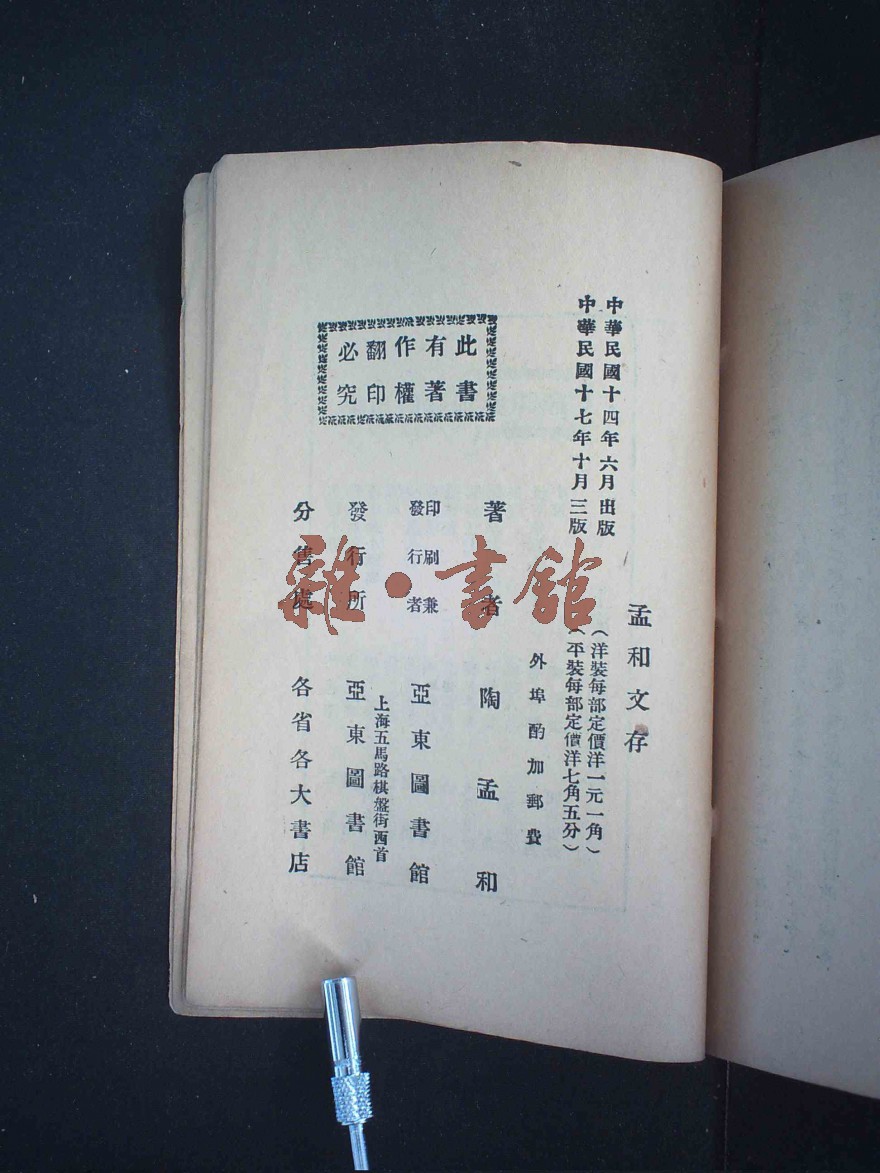 中華民國十四年六月出版
中華民國十七年十月三版
孟和文存
(洋裝每部定價洋一元一角)
(平裝每部定價洋七角五分)
外埠酌加郵費
著者 陶孟和
印刷兼
發行者 亞東圖書館
上海五馬路棋盤街西首
發行所 亞東圖書館
分售處 各省各大書店
此書
有著
作權
翻印
必究
雜·書館